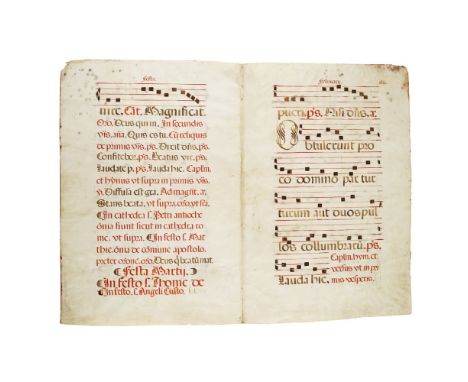 Festa
iire. Cāt. Magnificat.
Oro. Deus qui in. In secundis
vis. aña. Quis es tu. Cū reliquis
de primis vis. ps. Dixit dñs. ps.
Confitebor. ps. Beatus vir. ps.
Laudate p. ps. Lauda hie. Caplm
et hymus vt supra in primis vis.
v. Diffusa est gra. Ad magist. a.
Stans beata. vt supra.
In cathedra s. Petri antioche
oīa fiunt sicut in cathedra ro
me. vt supra. In festo s. Mat
thie. oīa de comune apostolo.
preter
Festa Martij.
In festo s. Thome de
In festo s. Angeli Custo.
Februarij.
pueri. ps. Nisi dñs. a.
Obtulerunt pro
eo domino par tur
turum aut duos pul
los collumbarū. ps.
Caplm. hym. et
versus vt in pri
Lauda hie. mis vesperis.